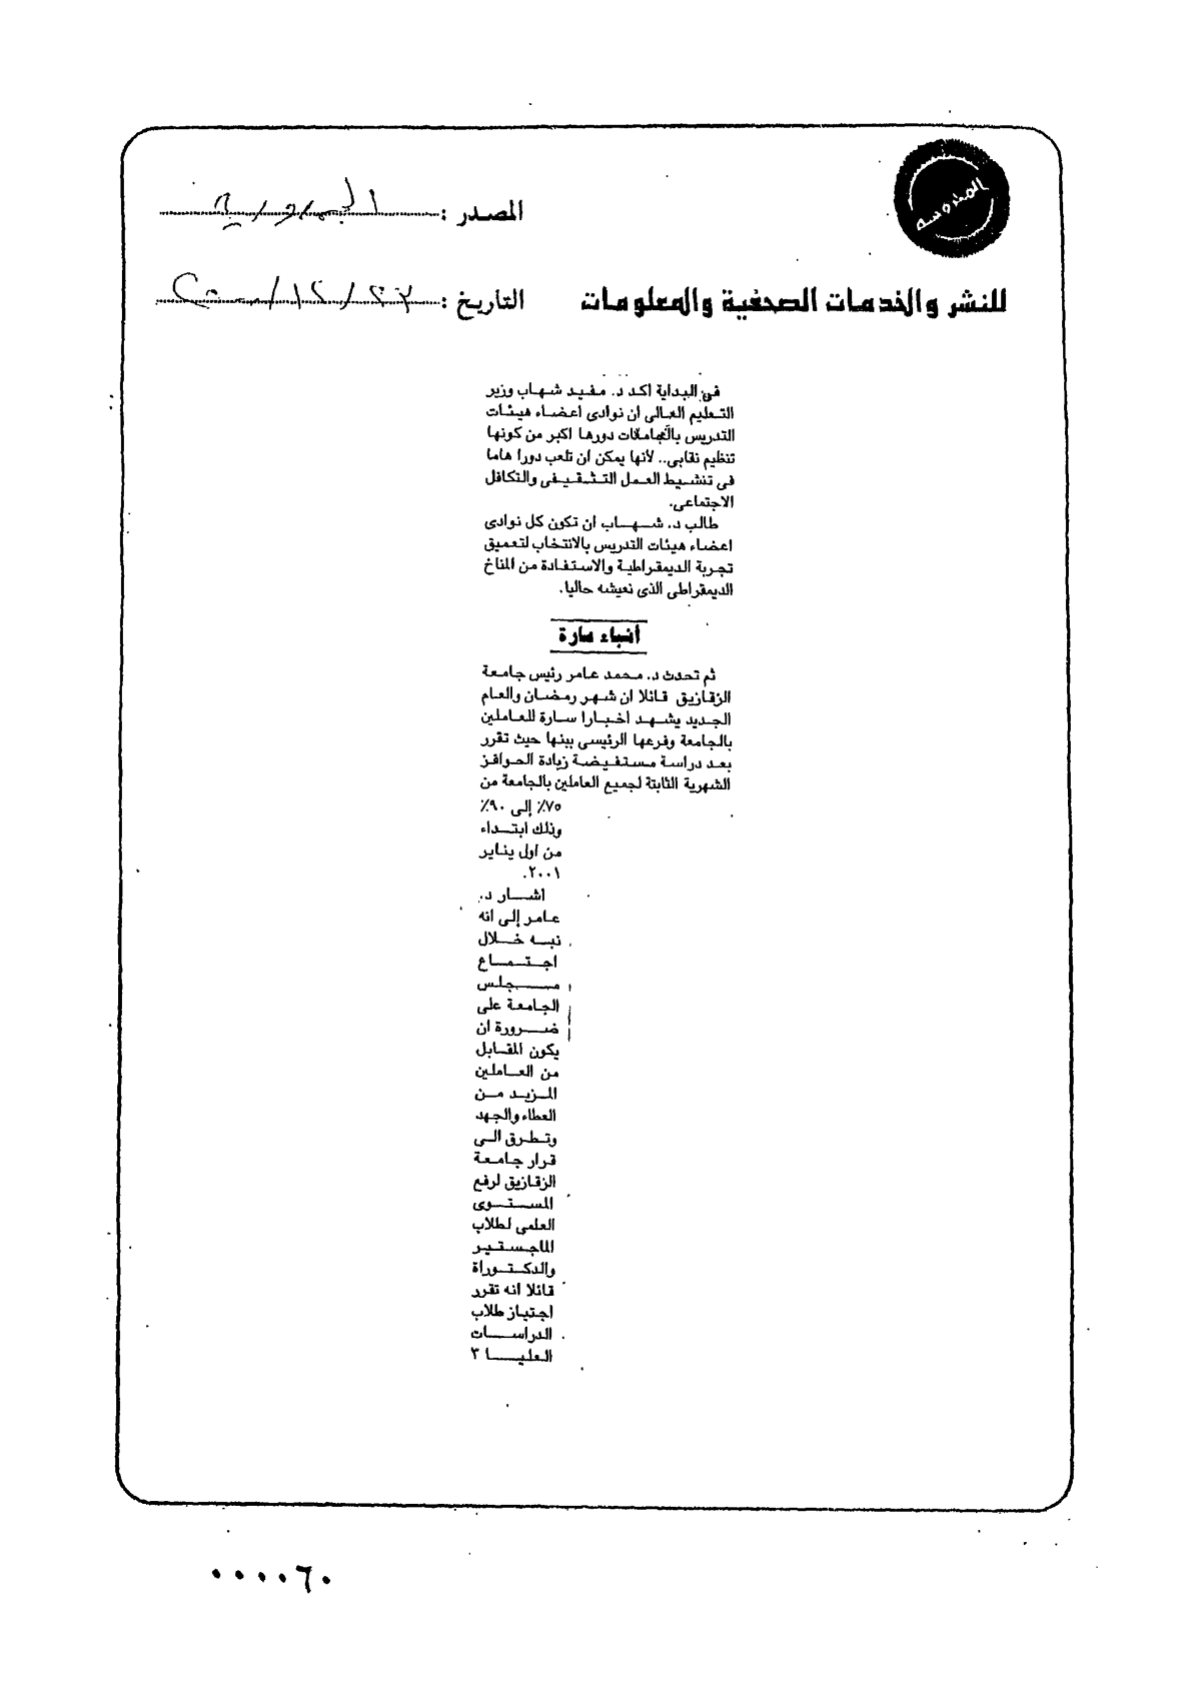 المحروسة
المصدر : الجمهورية
للنشر والخدمات الصحفية والمعلومات
التاريخ : ٢٧ / ١٢ / ٢٠٠٠
في البداية اكد د. مفيد شهاب وزير
التعليم العالى ان نوادى اعضاء هيئات
التدريس بالجامعات دورها اكبر من كونها
تنظيم نقابى.. لأنها يمكن ان تلعب دورا هاما
فى تنشيط العمل التثقيفى والتكافل
الاجتماعى.
طالب د. شهاب ان تكون كل نوادى
اعضاء هيئات التدريس بالانتخاب لتعميق
تجربة الديمقراطية والاستفادة من المناخ
الديمقراطى الذى نعيشه حاليا.
أنباء سارة
ثم تحدث د. محمد عامر رئيس جامعة
الزقازيق قائلا ان شهر رمضان والعام
الجديد يشهد اخبارا سارة للعاملين
بالجامعة وفرعها الرئيسى ببنها حيث تقرر
بعد دراسة مستفيضة زيادة الحوافز
الشهرية الثابتة لجميع العاملين بالجامعة من
٧٥٪ إلى ٩٠٪
وذلك ابتداء
من اول يناير
٢٠٠١.
اشار د.
عامر إلى انه
نبه خلال
اجتماع
مجلس
الجامعة على
ضرورة ان
يكون المقابل
من العاملين
المزيد من
العطاء والجهد
وتطرق الى
قرار جامعة
الزقازيق لرفع
المستوى
العلمى لطلاب
الماجستير
والدكتوراة
قائلا انه تقرر
اجتياز طلاب
الدراسات
العليا ٣
٠٠٠٠٦٠